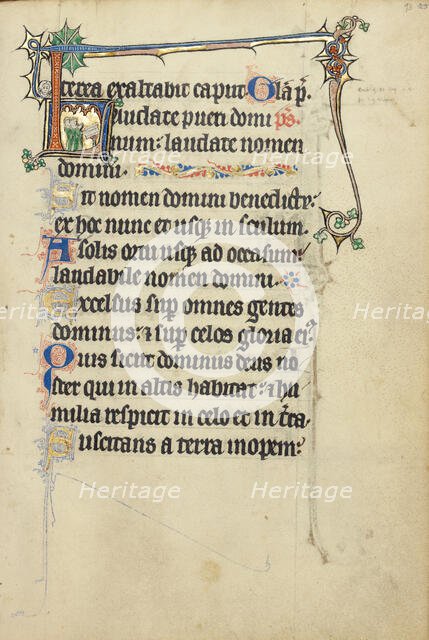 terra exaltabit caput. Gl̄a p̄r.
Laudate pueri domi ps.
num: laudate nomen
domini.
Sit nomen domini benedictū:
ex hoc nunc et usq; in seculum.
A solis ortu usq; ad occasum:
laudabile nomen domini.
Excelsus sup̄ omnes gentes
dominus: & sup̄ celos gloria ei9
Quis sicut dominus deus no
ster qui in altis habitat: & hu
milia respicit in celo et in t̄ra
Suscitans a terra inopem:
Heritage
Heritage
Heritage
Heritage
Heritage
Heritage
Heritage